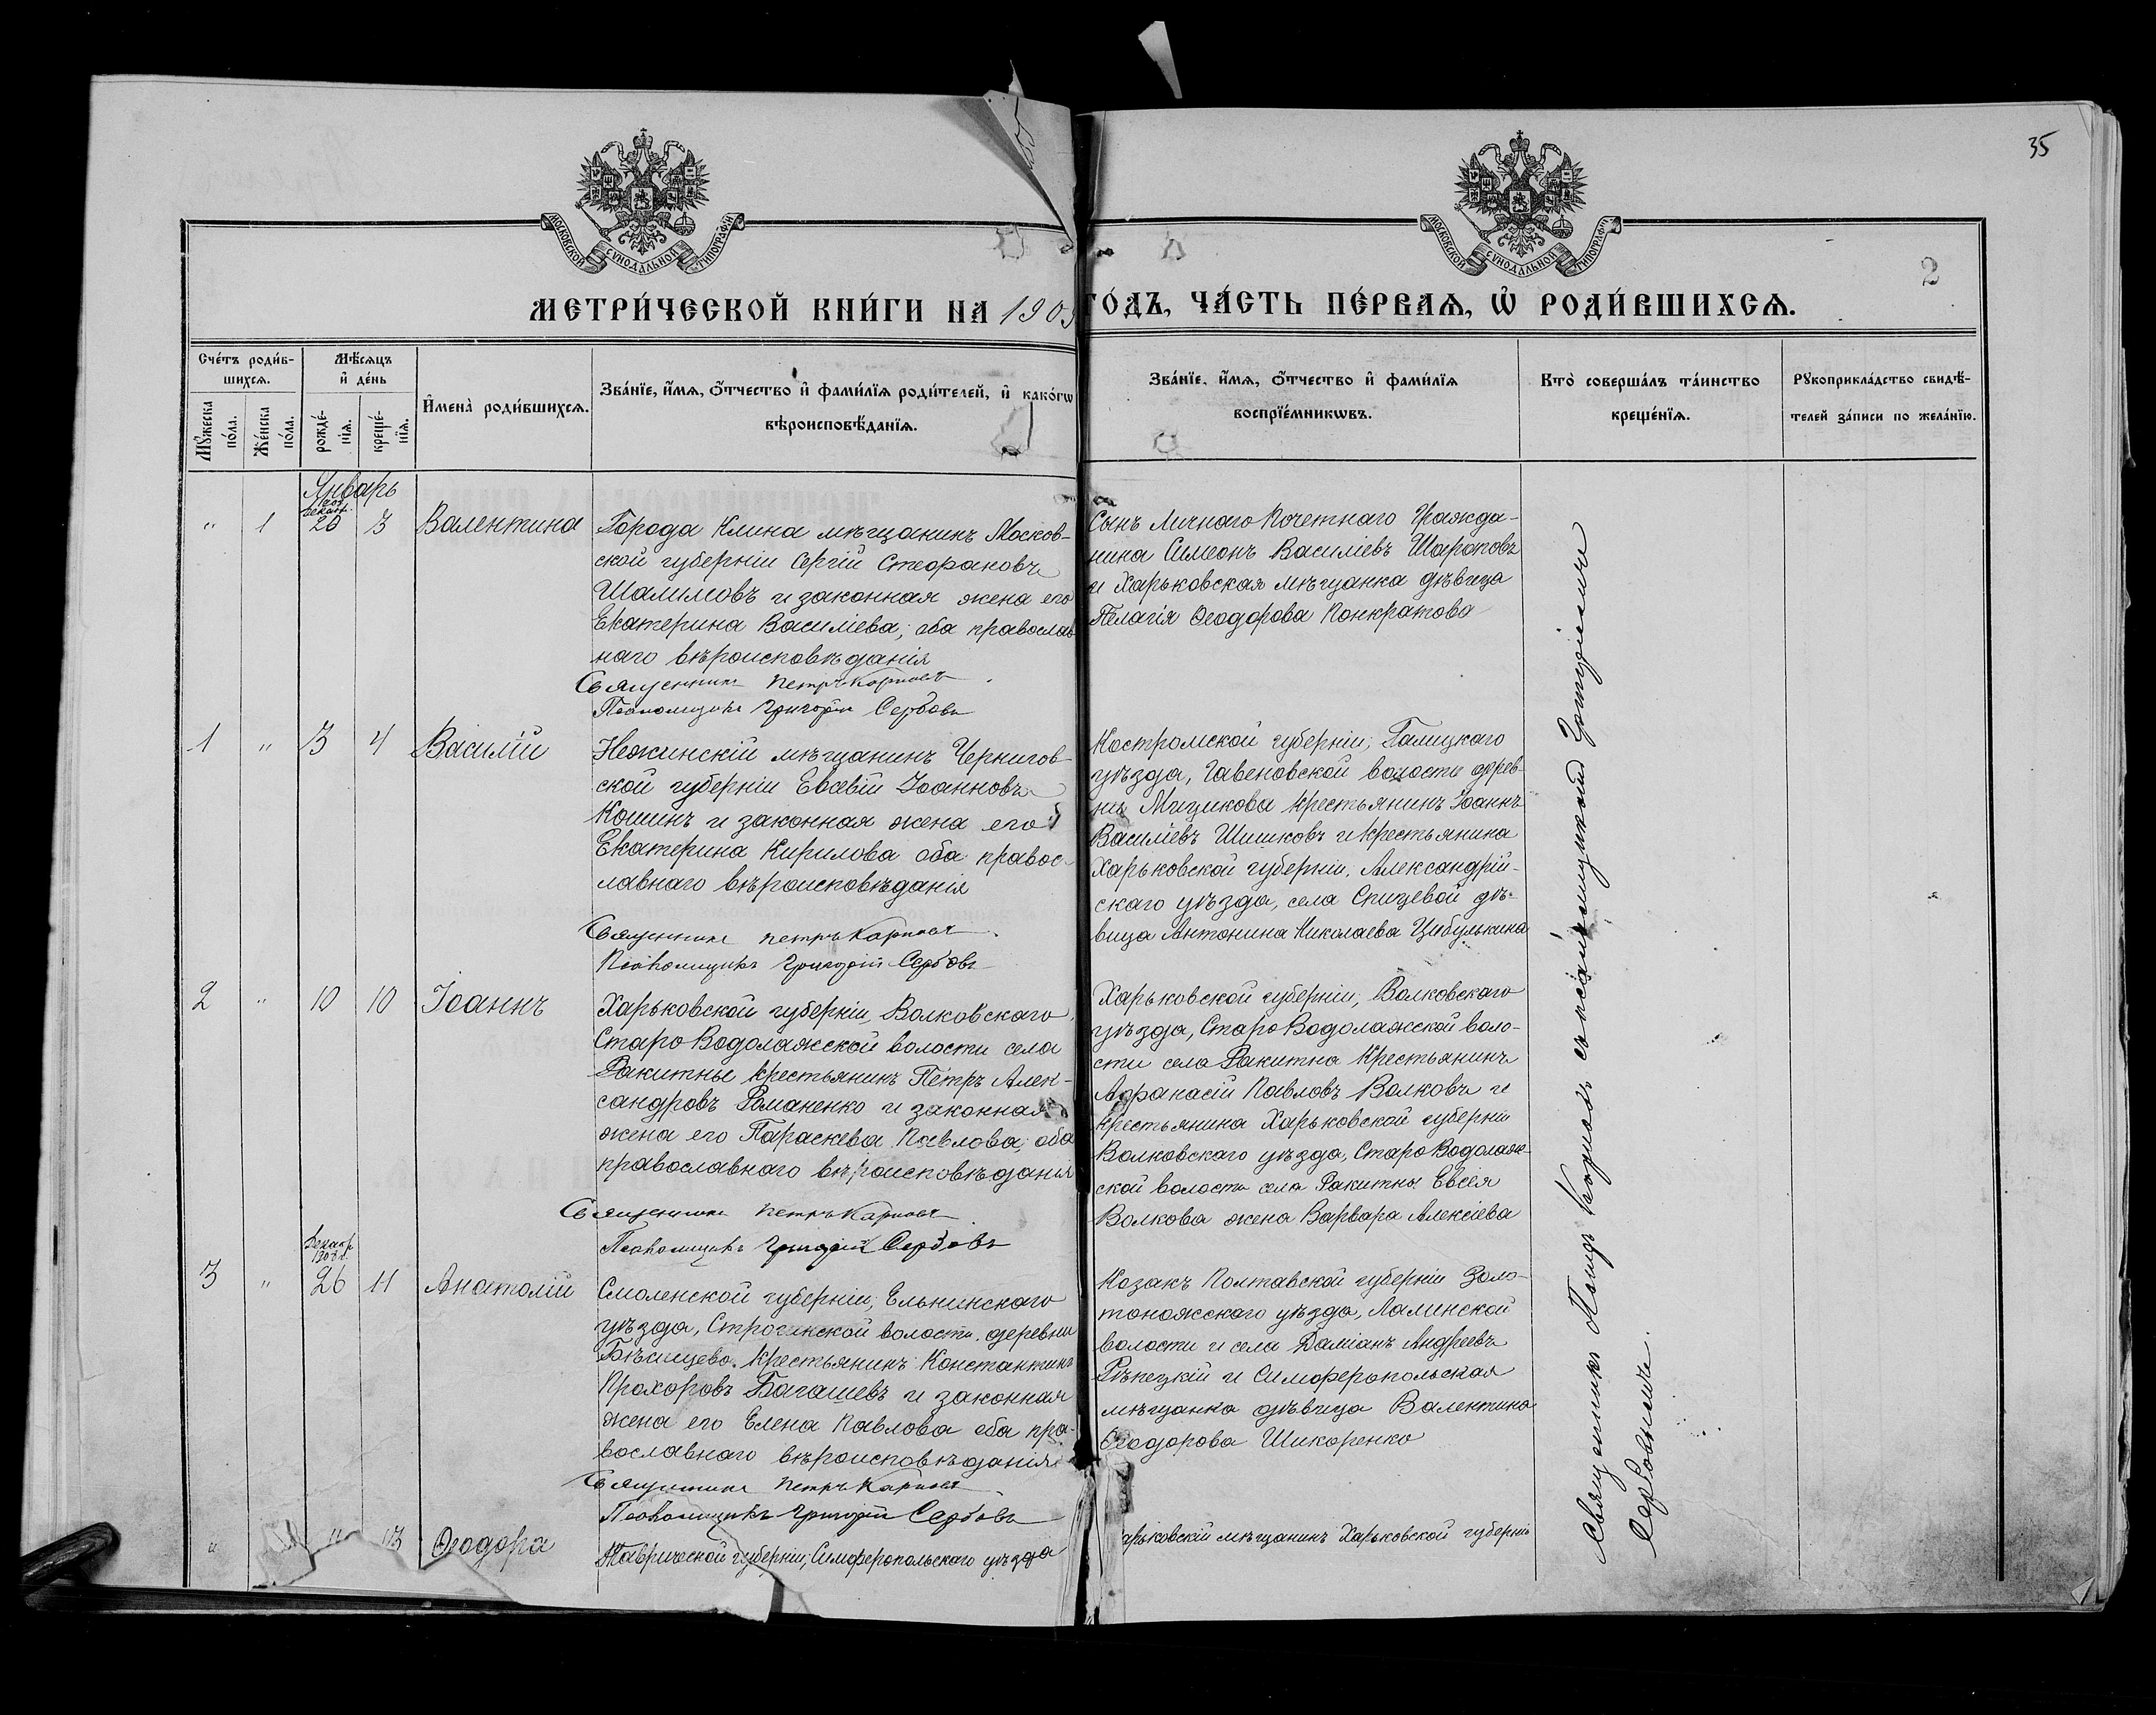 35
МОСКОВСКОЙ СУНОДАЛЬНОЙ ТИПОГРАФІИ
МОСКОВСКОЙ СУНОДАЛЬНОЙ ТИПОГРАФІИ
2
МЕТРИ́ЧЕСКОЙ КНИ́ГИ НА 1909 ГО́ДЪ, ЧА́СТЬ ПЕ́РВАѦ, Ѡ РОДИ́ВШИХСѦ.
Сче́тъ роди́в-
шихсѧ.
Мꙋ́жеска по́ла.
Же́нска по́ла.
Мѣ́сѧцъ
и҆ де́нь
рожде́-
нїѧ.
креще́-
нїѧ.
И҆мена̀ роди́вшихсѧ.
Зва́нїе, и҆́мѧ, ѻ҆́тчество и҆ фами́лїѧ роди́телей, и҆ како́гѡ
вѣроисповѣ́данїѧ.
Зва́нїе, и҆́мѧ, ѻ҆́тчество и҆ фами́лїѧ
воспрїе́мникѡвъ.
Кто̀ соверша́лъ та́инство
креще́нїѧ.
Рꙋкоприкла́дство свидѣ́-
телей за́писи по жела́нїю.
Январь
" 1 20 3 Валентина
Города Клина мѣщанинъ Москов-
ской губерніи Сергій Стефановъ
Шалимовъ и законная жена его
Екатерина Василіева, оба православ
наго вѣроисповѣданія
Священникъ Петръ Карповъ
Псаломщикъ Григорій Сербовъ
Сынъ Личнаго Почетнаго Гражда-
нина Симеонъ Василіевъ Шараповъ
и Харьковская мѣщанка дѣвица
Пелагія Ѳеодорова Понкратова
1 " 3 4 Василій
Нежинскій мѣщанинъ Чернигов-
ской губерніи Евсевій Іоанновъ
Кошинъ и законная жена его
Екатерина Кирилова оба правос-
лавнаго вѣроисповѣданія
Священникъ Петръ Карповъ
Псаломщикъ Григорій Сербовъ
Костромской губерніи, Галицкаго
уѣзда, волости дерев-
нѣ крестьянинъ Іоаннъ
Василіевъ Шишковъ и крестьянина
Харьковской губерніи, Александрій-
скаго уѣзда, села дѣ-
вица Антонина Николаева Цибулькина
2 " 10 10 Іоаннъ
Харьковской губерніи, Волковскаго
Старо Водолажской волости села
Ракитны крестьянинъ Петръ Алек-
сандровъ Романенко и законная
жена его Параскева Павлова, оба
православнаго вѣроисповѣданія
Священникъ Петръ Карповъ
Псаломщикъ Григорій Сербовъ
Харьковской губерніи, Волковскаго
уѣзда, Старо Водолажской воло-
сти села Ракитна крестьянинъ
Афанасій Павловъ Волковъ и
крестьянина Харьковской губерніи
Волковскаго уѣзда, Старо Водолаж-
ской волости села Ракитны Евсея
Волкова жена Варвара Алексіева
Декабр
1908 г.
3 " 26 11 Анатолій
Смоленской губерніи, Ельнинскаго
уѣзда, волости, деревни
крестьянинъ Константинъ
Прохоровъ Багашевъ и законная
жена его Елена Павлова оба пра-
вославнаго вѣроисповѣданія
Священникъ Петръ Карповъ
Псаломщикъ Григорій Сербовъ
Козакъ Полтавской губерніи Золо-
тоножскаго уѣзда,
волости и села Даміанъ Андреевъ
Рѣпецкій и Симферопольская
мѣщанка дѣвица Валентина
Ѳеодорова Шикоренко
" 11 13 Ѳеодора
Таврической губерніи, Симферопольскаго уѣзда
арьковскій мѣщанинъ Харьковской губерніи
Священникъ Петръ Карповъ съ псаломщикомъ Григоріемъ
Сербовымъ.